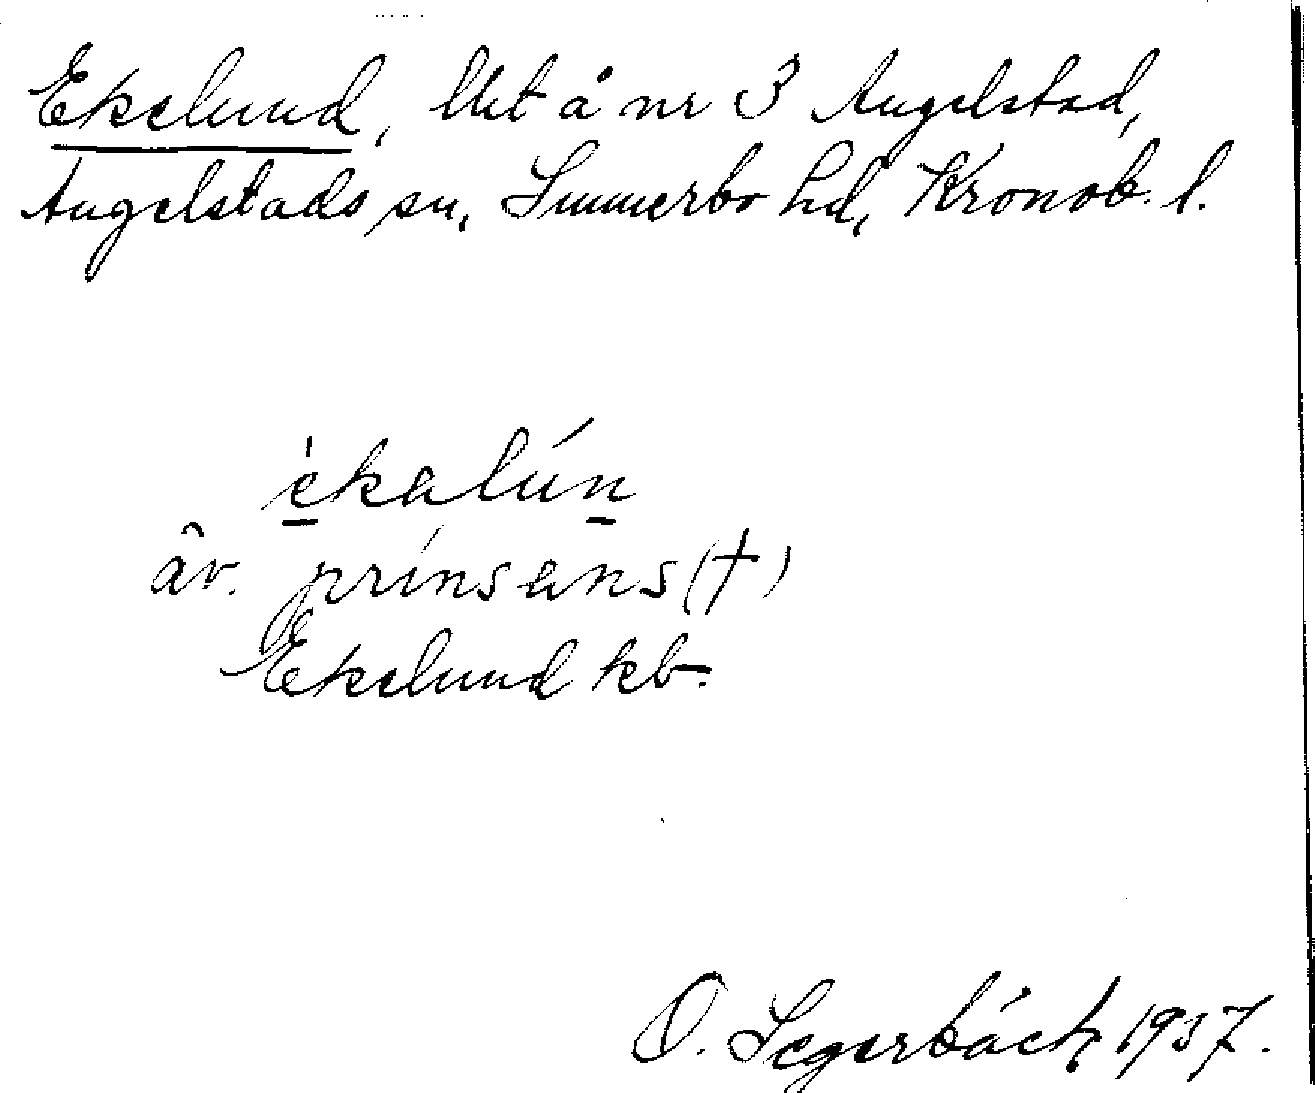 Ekelund, lht å nr 3 Angelstad,
Angelstads sn, Sunnerbo hd, Kronob. l.
èkalún
äv. prínsens (†)
Ekelund kb.
O. Segerbäck 1937.